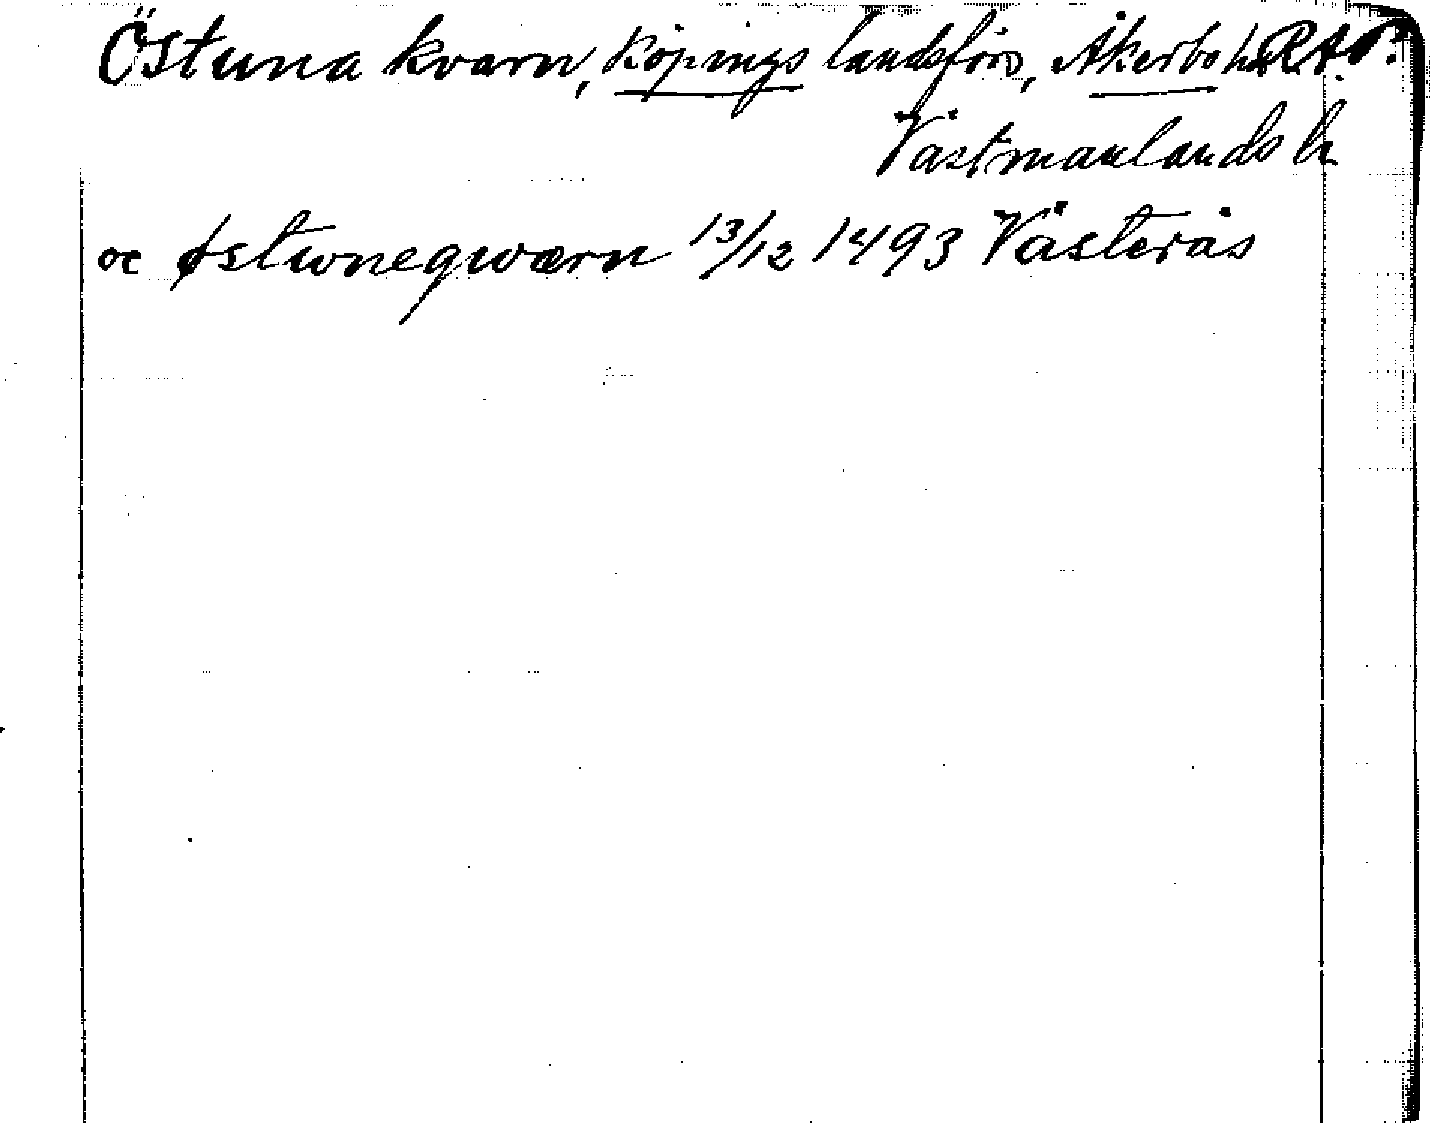 Östuna kvarn, Köpings landsförs, Åkerbo hd RAP.
Västmanlands l.
oc østwneqwærn 13/12 1493 Västerås